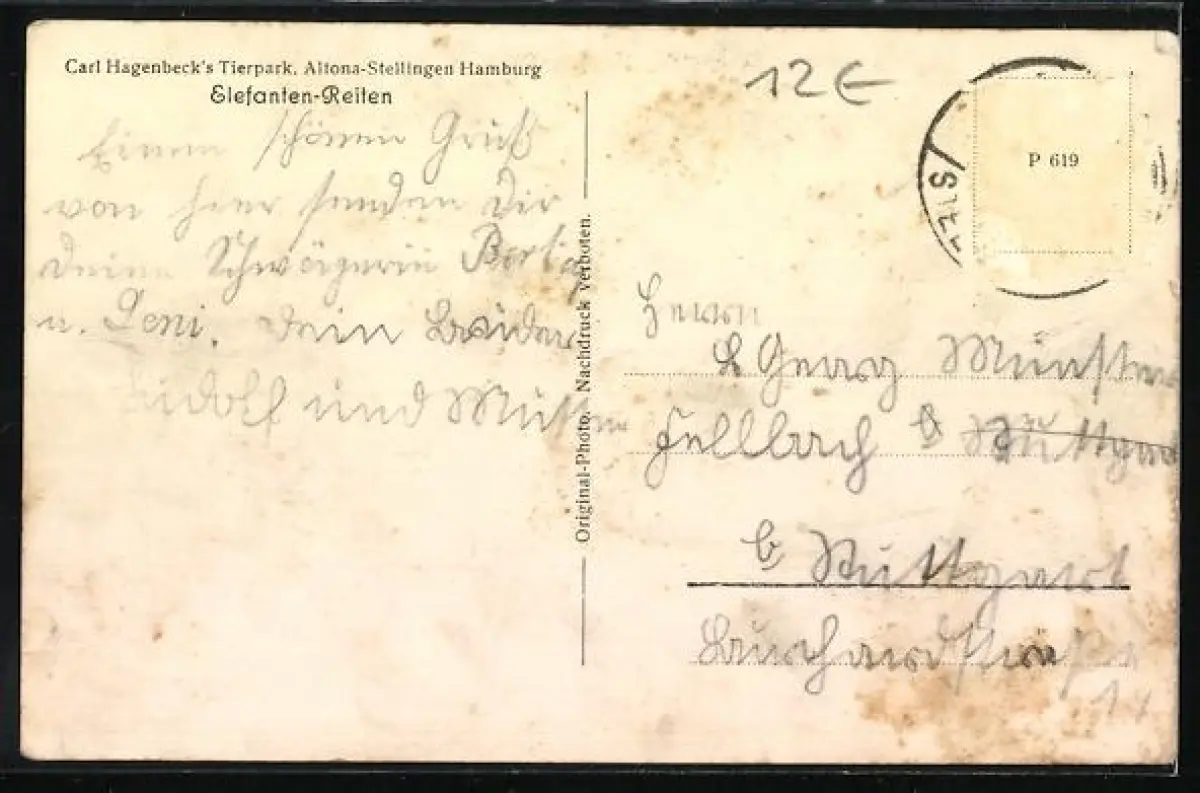 Carl Hagenbeck's Tierpark, Altona-Stellingen Hamburg
Elefanten-Reiten
Einen schönen Gruß
von hier senden Dir
deine Schwägerin Berta
u. Leni. Dein Bruder
Rudolf und Mutter
Original-Photo. Nachdruck verboten.
12€
P 619
Herrn
Georg Münster
Fellbach b Stuttgart
b Stuttgart